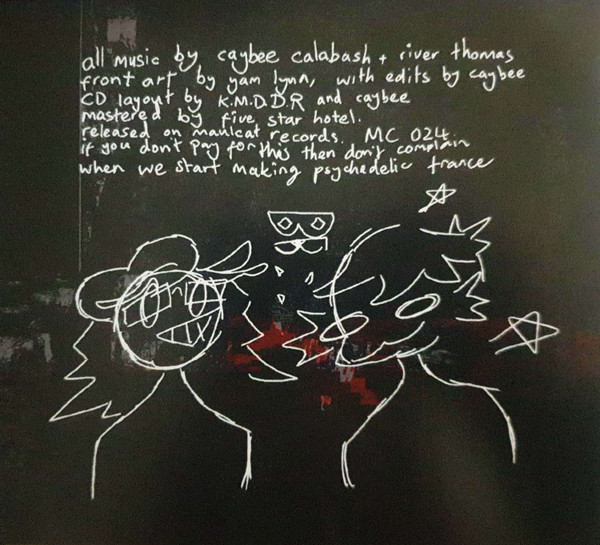 all music by caybee calabash + river thomas
front art by yam lynn, with edits by caybee
CD layout by K.M.D.D.R and caybee
mastered by five star hotel.
released on maulcat records. MC 024.
if you don't pay for this then don't complain
when we start making psychadelic trance